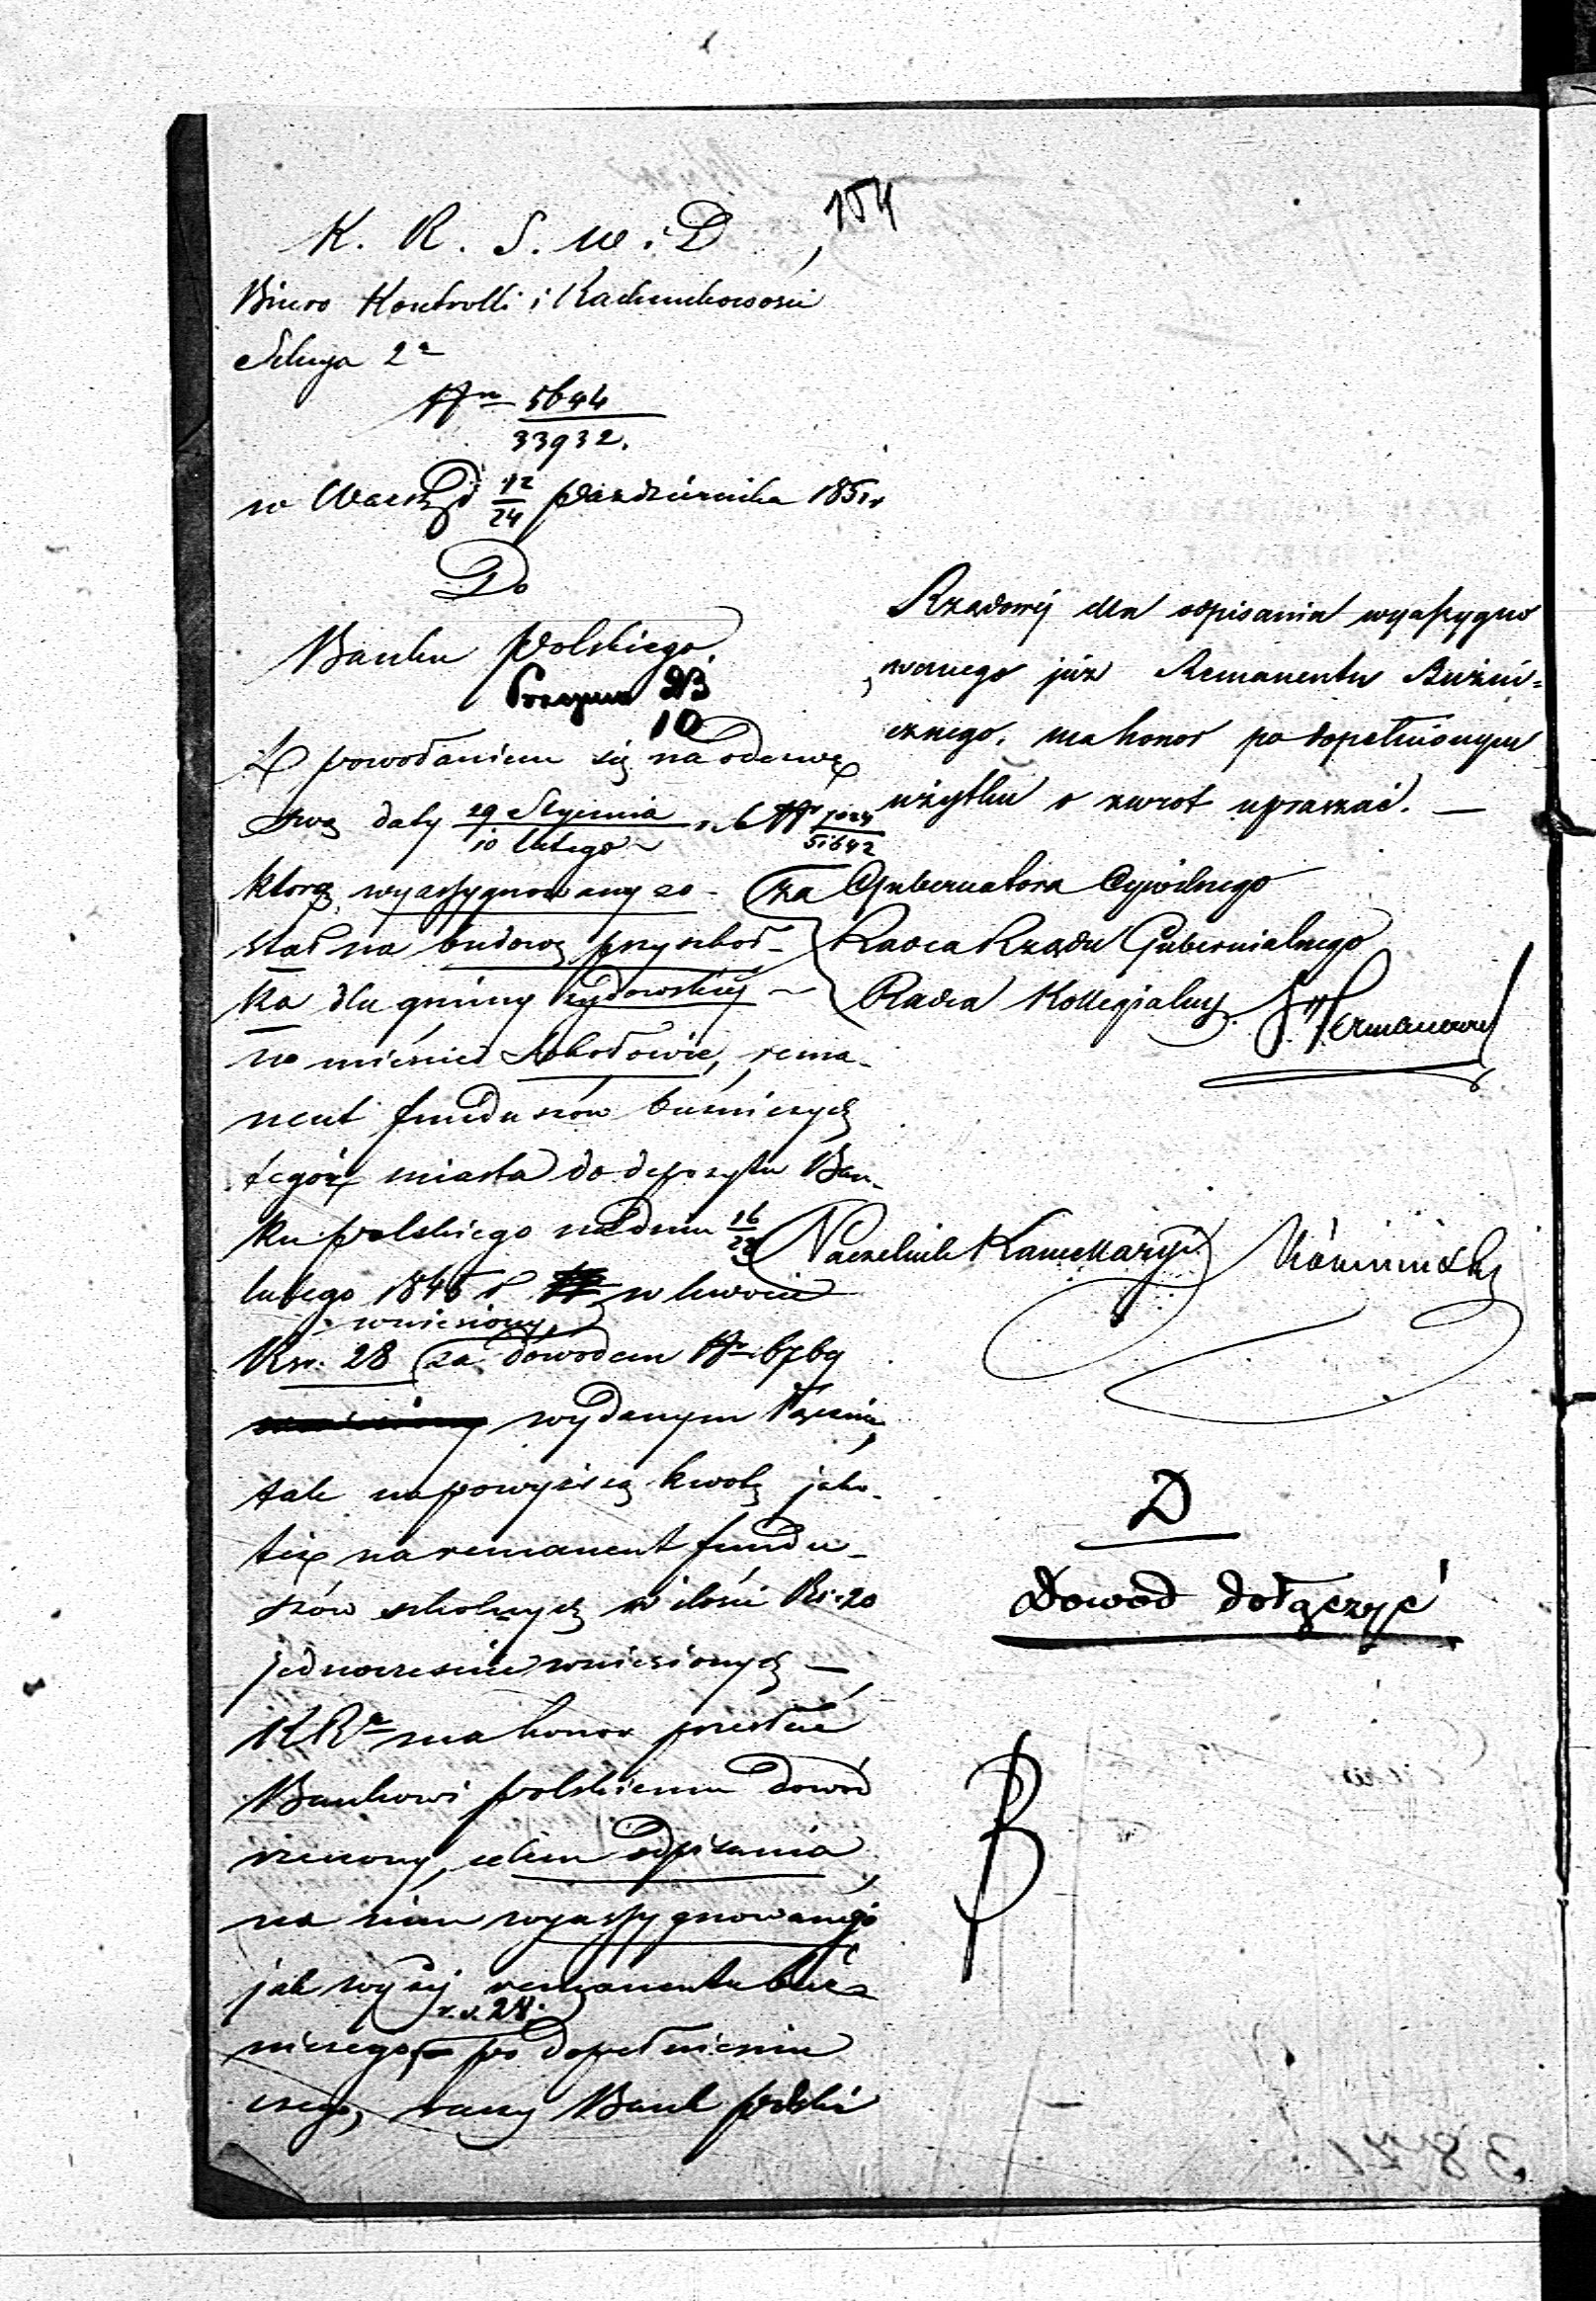 154
K. R. S. W. i D.
Biuro Kontrolli i Rachunkowości
Sekcya 2ª
Nr 5644/33932.
w Warsz. d 12/24 Października 1851 r
Do
Banku Polskiego.
23
10
Z powołaniem się na odezwę
swą daty 29 Stycznia/10 Lutego r. b. Nr
którą wyassygnowany zo-
stał na budowę przyszkoł-
ka dla gminy Żydowskiej
w mieście Sokołowie, rema-
nent funduszów bużniczych
tegoż miasta do depozytu Ban-
ku Polskiego na dniu 16/28
lutego 1846 r w kwocie
wniesiony,
Rsr. 28 za dowodem Nr 6769
wydanym
tak na powyższą kwotę jako-
też na remanent fundu-
szów szkolnych w ilości Rs. 20
jednocześnie wniesionych —
KRª ma honor przesłać
Bankowi Polskiemu dowód
rzeczony, celem odpisania
na nim wyassygnowanego
jak wyżej remanentu buż-
r. s. 28.
niczego, po dopełnieniu
czego, raczy Bank Polski
Rządowej dla odpisania wyassygno
wanego już Remanentu Bużni=
cznego, ma honor po dopełnionym
użytku o zwrot upraszać. —
za Gubernatora Cywilnego
Radca Rządu Gubernialnego
Radca Kollegialny
Naczelnik Kancellaryi
D
Dowód dołączyć